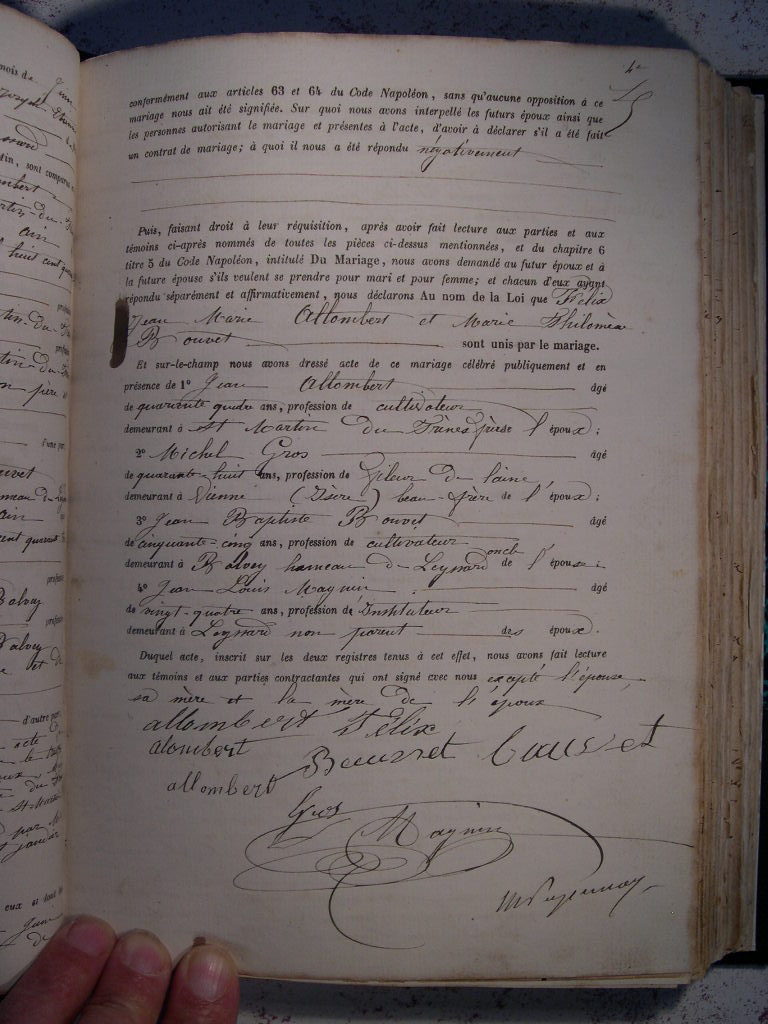 conformément aux articles 63 et 64 du Code Napoléon, sans qu'aucune opposition à ce
mariage nous ait été signifiée. Sur quoi nous avons interpellé les futurs époux ainsi que
les personnes autorisant le mariage et présentes à l'acte, d'avoir à déclarer s'il a été fait
un contrat de mariage; à quoi il nous a été répondu négativement
Puis, faisant droit à leur réquisition, après avoir fait lecture aux parties et aux
témoins ci-après nommés de toutes les pièces ci-dessus mentionnées, et du chapitre 6
titre 5 du Code Napoléon, intitulé Du Mariage, nous avons demandé au futur époux et à
la future épouse s'ils veulent se prendre pour mari et pour femme; et chacun d'eux ayant
répondu séparément et affirmativement, nous déclarons Au nom de la Loi que Félix
Jean Marie Allombert et Marie Philomène
Bouvet sont unis par le mariage.
Et sur-le-champ nous avons dressé acte de ce mariage célébré publiquement et en
présence de 1° Jean Allombert âgé
de quarante quatre ans, profession de cultivateur
demeurant à St Martin du Frênes frère de l'époux;
2° Michel Gros âgé
de quarante-huit ans, profession de fileur de laine
demeurant à Vienne (Isère) beau-frère de l'époux;
3° Jean Baptiste Bouvet âgé
de cinquante-cinq ans, profession de cultivateur
demeurant à Balvay hameau de Leyssard oncle de l'épouse;
4° Jean Louis Magnin âgé
de vingt-quatre ans, profession de Instituteur
demeurant à Leyssard non parent des époux.
Duquel acte, inscrit sur les deux registres tenus à cet effet, nous avons fait lecture
aux témoins et aux parties contractantes qui ont signé avec nous excepté l'épouse,
sa mère et la mère de l'époux
allombert Félix
alombert Bouvet Bouvet
allombert
Gros
Magnin